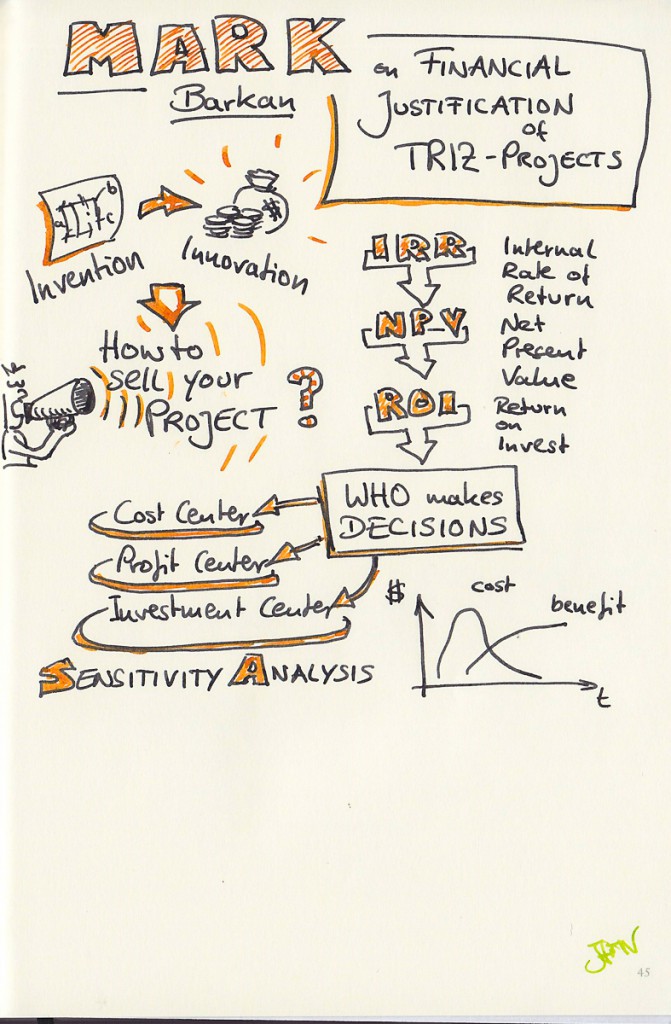 MARK
Barkan
on FINANCIAL
JUSTIFICATION
of
TRIZ-PROJECTS
b
a
c
Invention
Innovation
$
How to
sell your
PROJECT ?
IRR
Internal
Rate of
Return
NPV
Net
Present
Value
ROI
Return
on
Invest
WHO makes
DECISIONS
Cost Center
Profit Center
Investment Center
SENSITIVITY ANALYSIS
$
cost
benefit
t
JAN
45